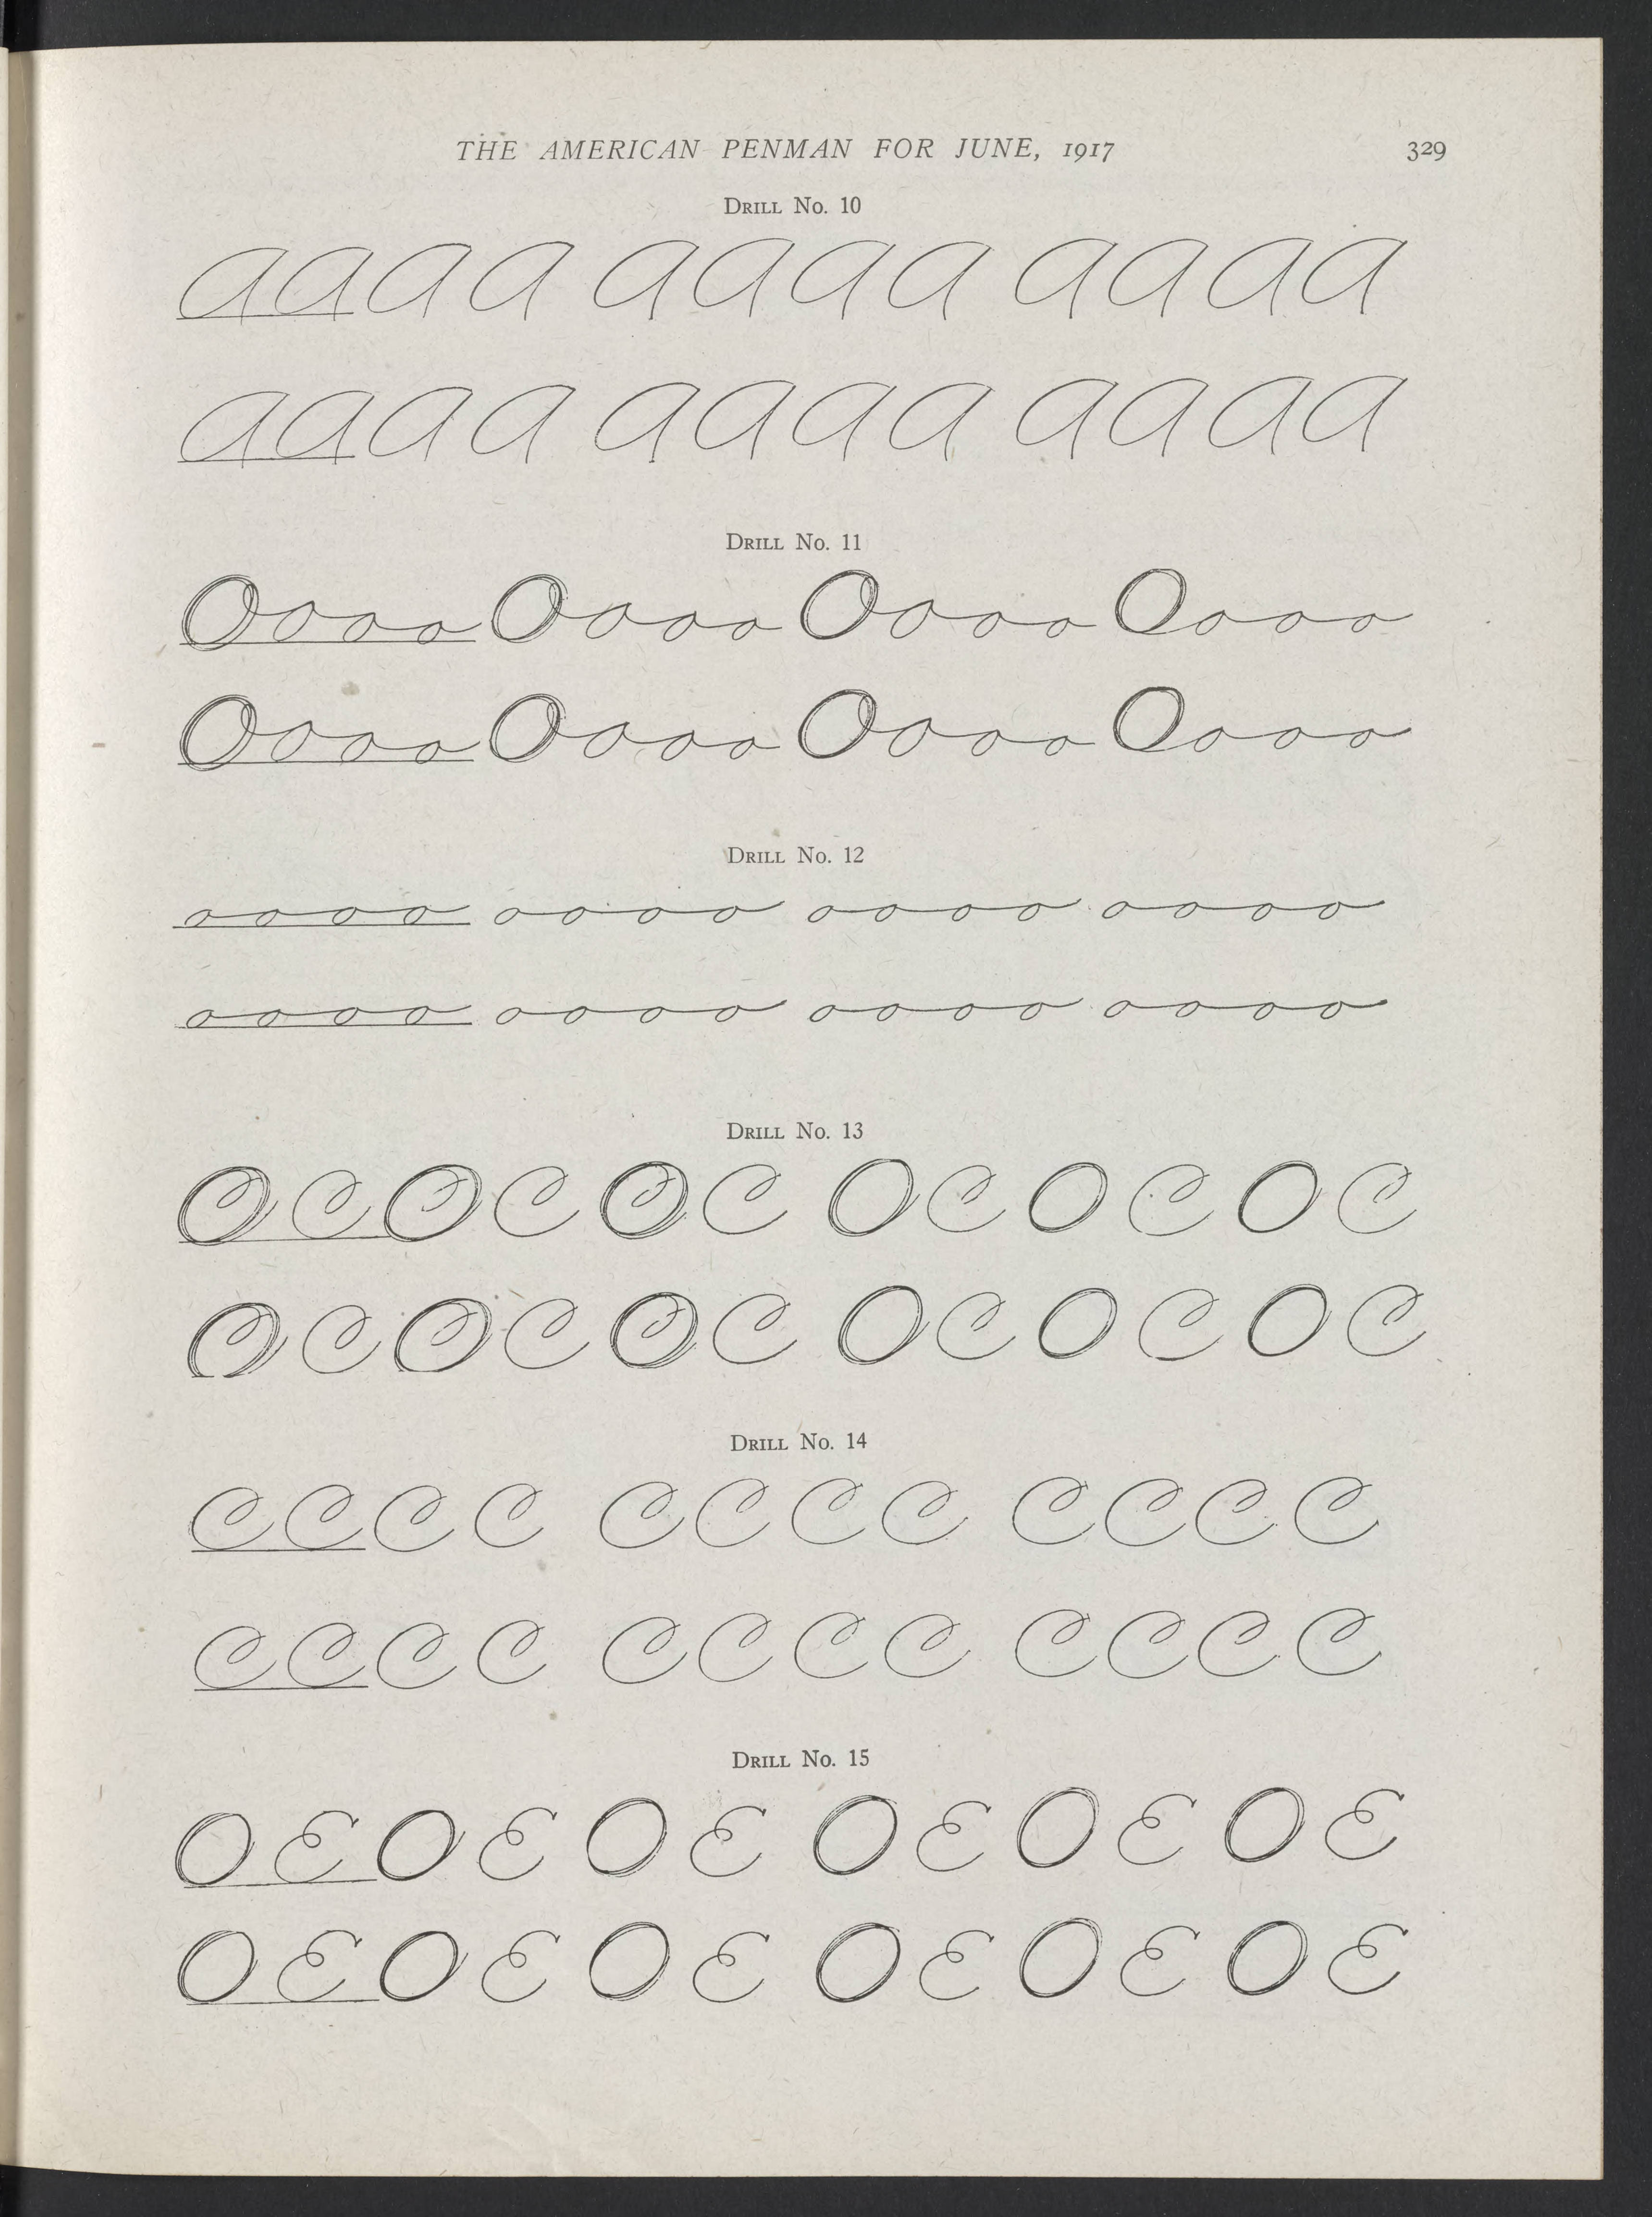 THE AMERICAN PENMAN FOR JUNE, 1917 329
DRILL No. 10
a a a a a a a a a a a a
a a a a a a a a a a a a
DRILL No. 11
O o o o O o o o O o o o O o o o
O o o o O o o o O o o o O o o o
DRILL No. 12
o o o o o o o o o o o o o o o o
o o o o o o o o o o o o o o o o
DRILL No. 13
O C O C O C O C O C O C
O C O C O C O C O C O C
DRILL No. 14
C C C C C C C C C C C C
C C C C C C C C C C C C
DRILL No. 15
O E O E O E O E O E O E
O E O E O E O E O E O E